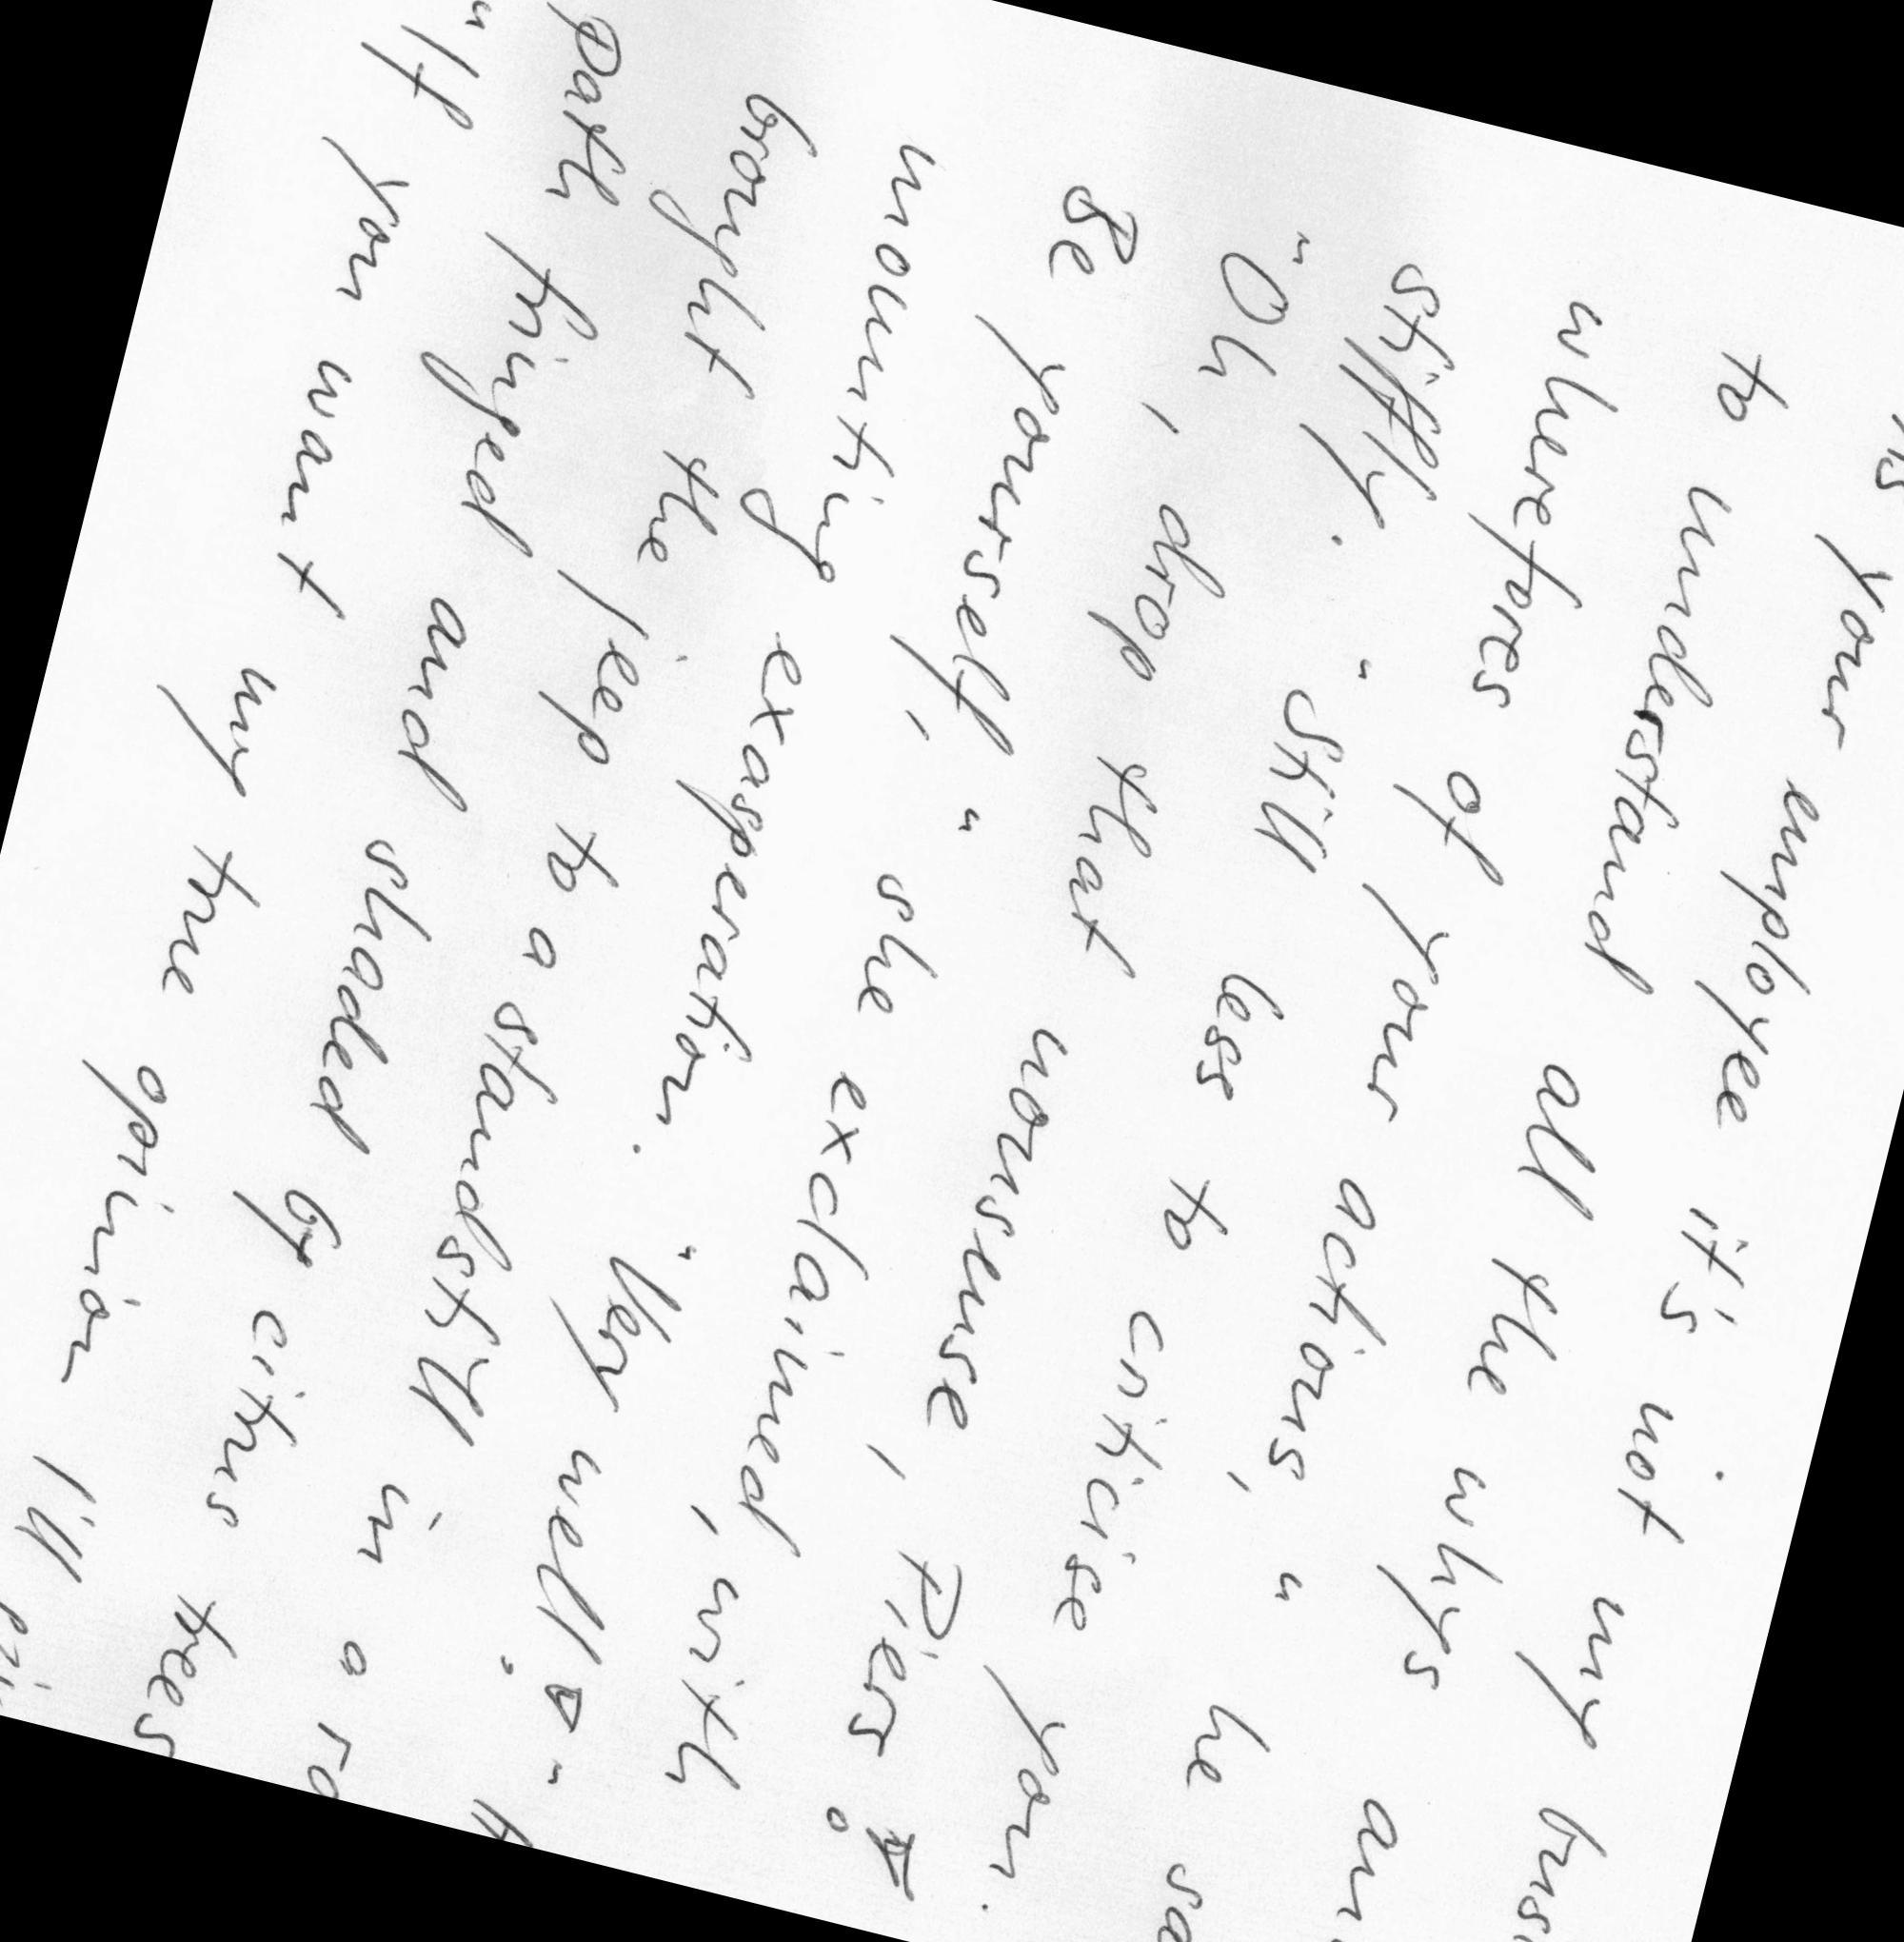 your employee it's not my bus
to understand all the whys an
wherefores of your actions," he sa
stiffly. "Still less to criticise you.
"Oh, drop that nonsense, Piers!
Be yourself," she exclaimed, with
mounting exasperation. "Very well!" H
brought the jeep to a standstill in a ro
path fringed and shaded by citrus trees
"If you want my true opinion I'll